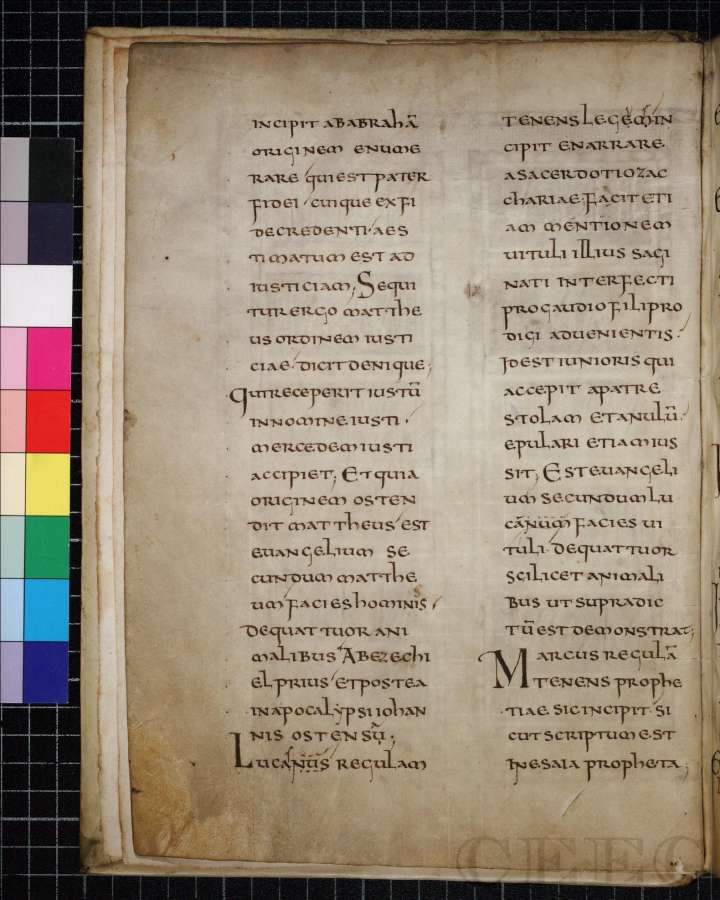 INCIPIT ABABRAHĀ
ORIGINEM ENUME
RARE QUIESTPATER
FIDEI CUIQUE EXFI
DECREDENTIAES
TIMATUM EST AD
IUSTICIAM; SEQUI
TUR ERGO MATTHE
US ORDINEM IUSTI
CIAE·DICITDENIQUE;
QUIRECEPERITIUSTŪ
INNOMINEIUSTI·
MERCEDEMIUSTI
ACCIPIET; ETQUIA
ORIGINEM OSTEN
DIT MATTHEUS EST
EUANGELIUM SE
CUNDUM MATTHE
UM FACIESHOMINIS
DEQUATTUOR ANI
MALIBUS ABEZECHI
EL PRIUS ETPOSTEA
INAPOCALYPSI IOHAN
NIS OSTENSŪ;
LUCANUS REGULAM
TENENS LEGEM IN
CIPIT ENARRARE·
ASACERDOTIOZAC
CHARIAE·FACIT ETI
AM MENTIONEM
UITULI ILLIUS SAGI
NATI INTERFECTI
PROGAUDIOFILIPRO
DIGI ADUENIENTIS·
IDEST IUNIORIS QUI
ACCEPIT APATRE
STOLAM ETANULŪ·
EPULARI ETIAMIUS
SIT; ESTEUANGELI
UM SECUNDUMLU
CANUM FACIES UI
TULI·DEQUATTUOR
SCILICET ANIMALI
BUS UTSUPRADIC
TŪ EST DEMONSTRAT;
MARCUS REGULĀ
TENENS PROPHE
TIAE SIC INCIPIT·SI
CUTSCRIPTUMEST
INESAIA PROPHETA;
CEEC